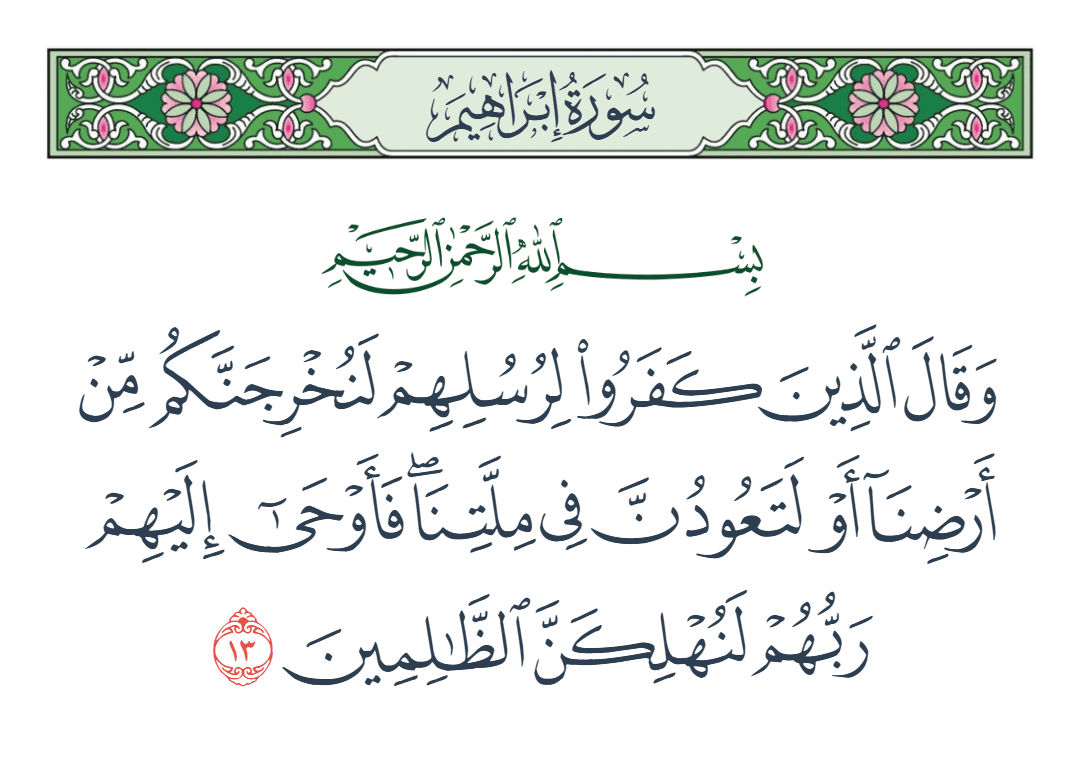 سُورَةُ إِبْرَاهِيمَ
بِسْمِ ٱللَّهِ ٱلرَّحْمَٰنِ ٱلرَّحِيمِ
وَقَالَ ٱلَّذِينَ كَفَرُوا۟ لِرُسُلِهِمْ لَنُخْرِجَنَّكُم مِّنْ
أَرْضِنَآ أَوْ لَتَعُودُنَّ فِى مِلَّتِنَا ۖ فَأَوْحَىٰٓ إِلَيْهِمْ
رَبُّهُمْ لَنُهْلِكَنَّ ٱلظَّٰلِمِينَ ١٣